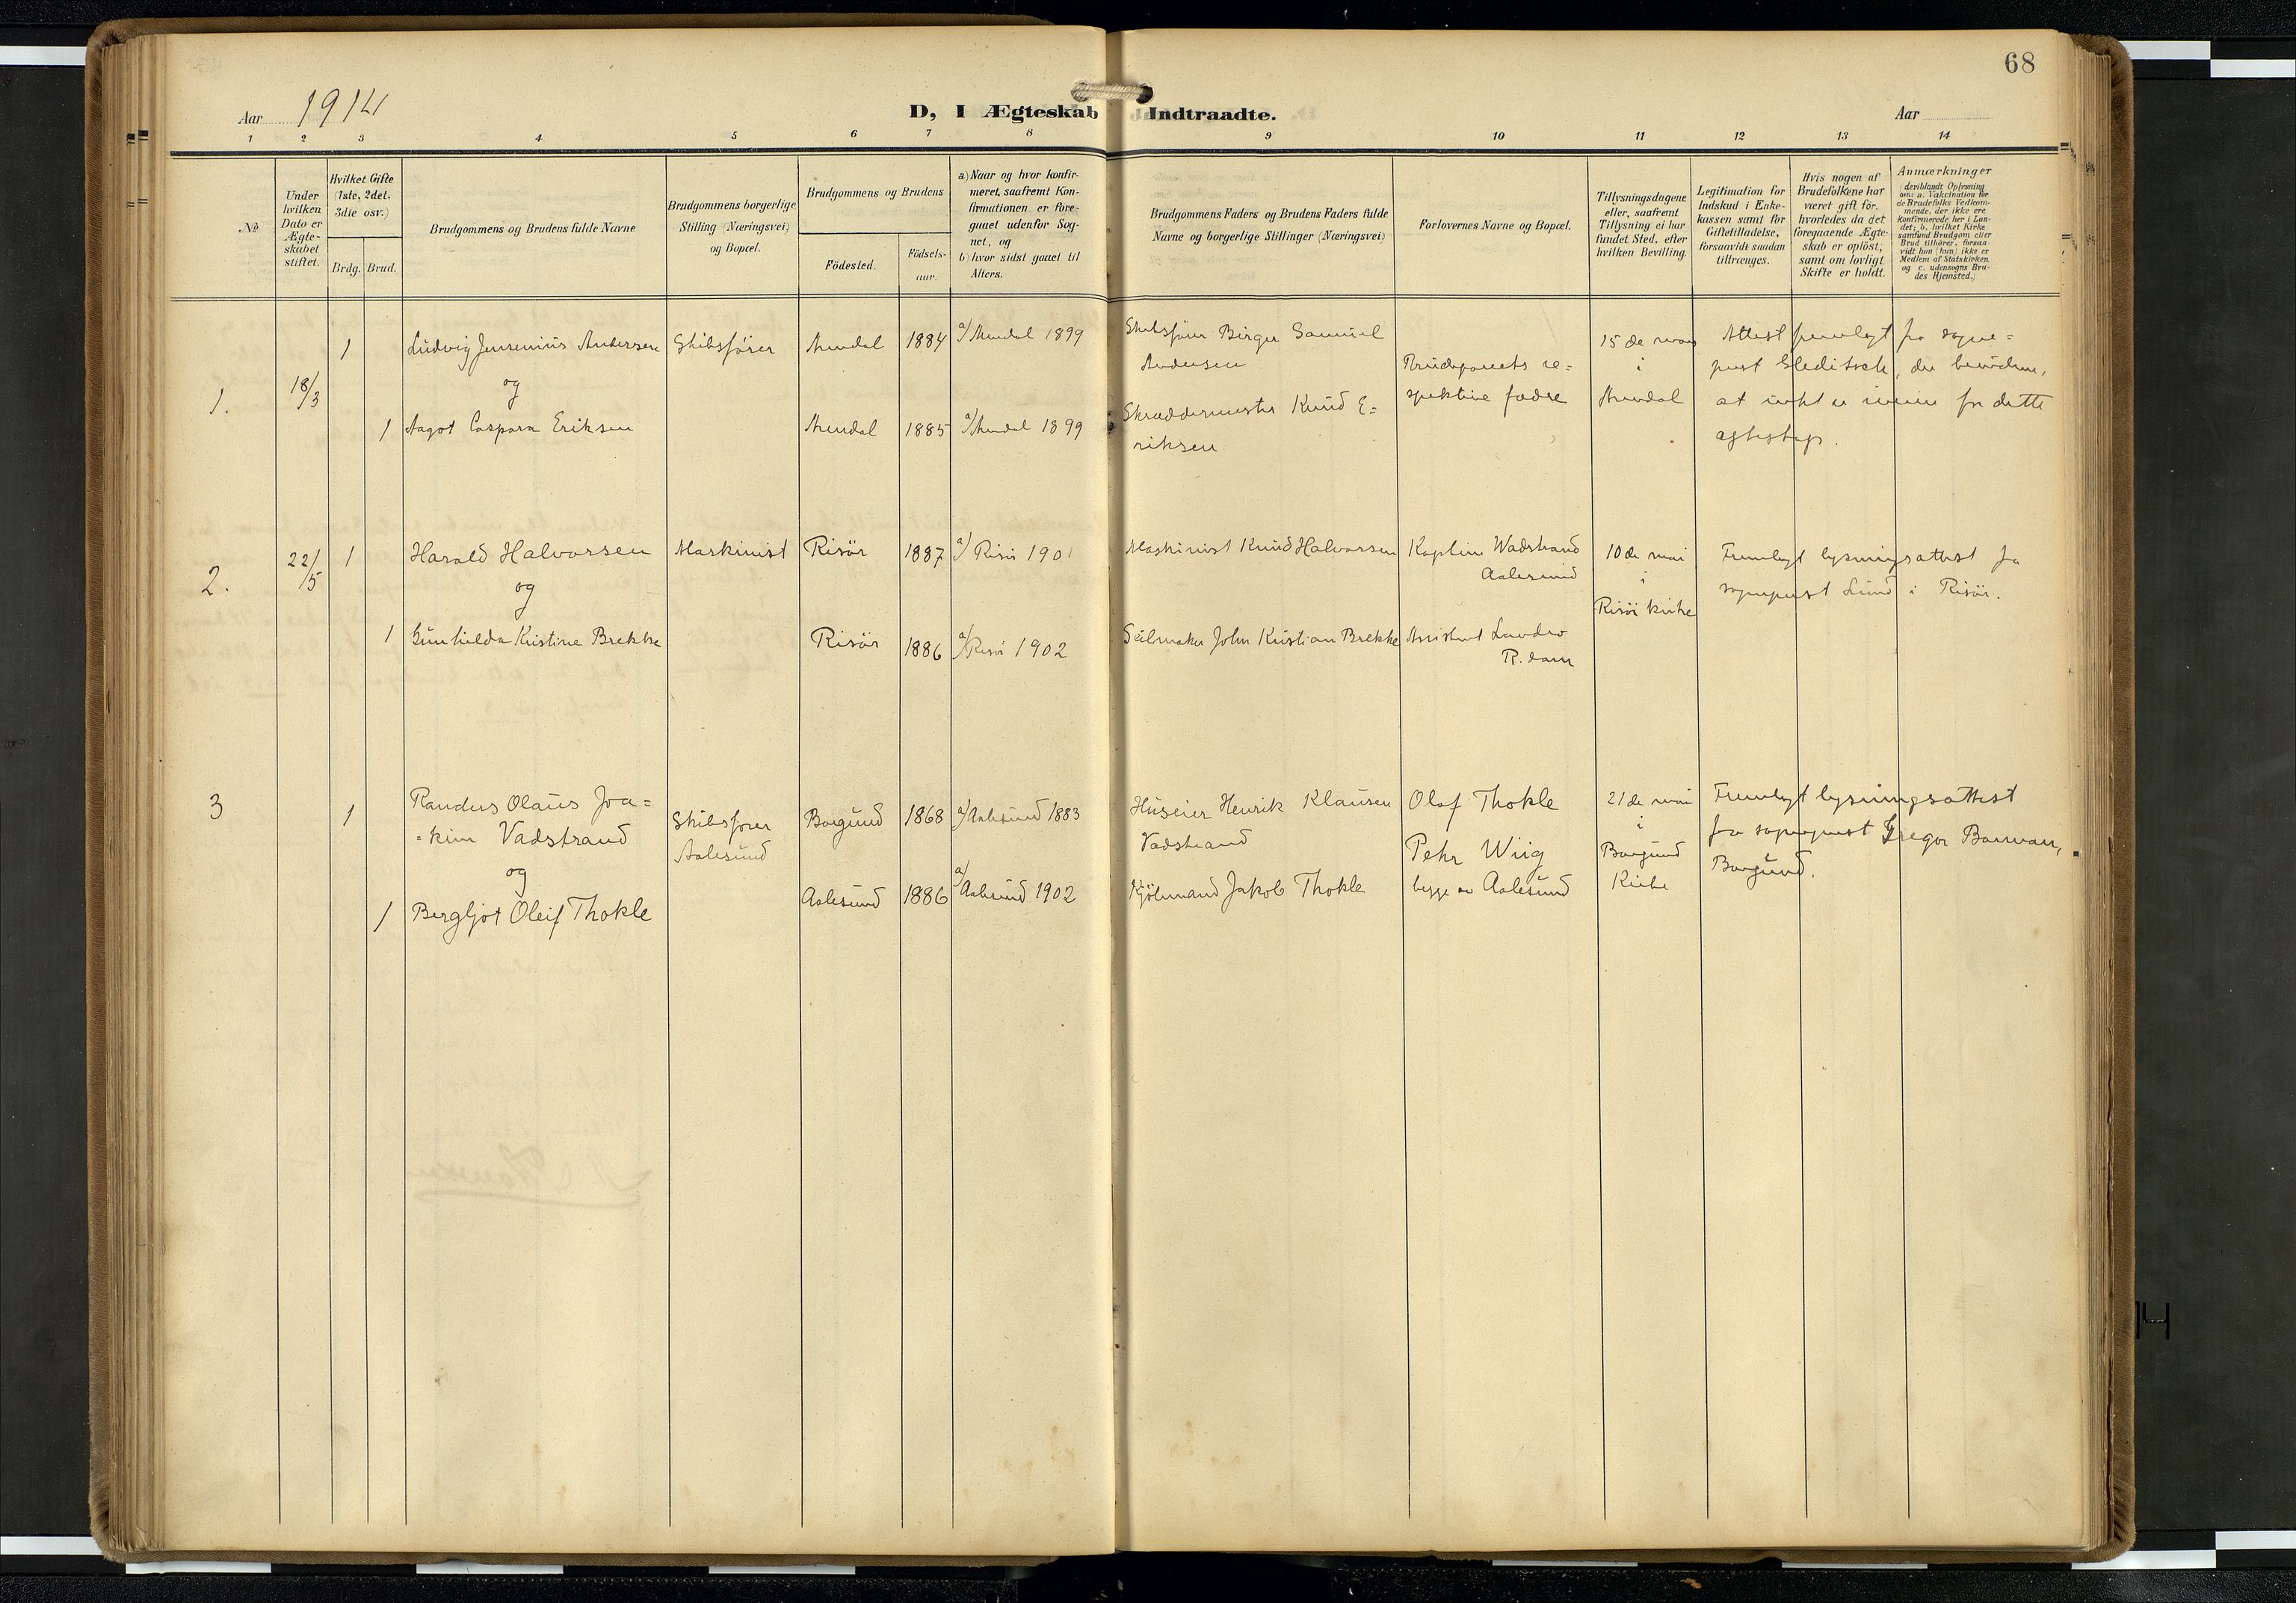 68
Aar 1914
D, I Ægteskab Indtraadte.
Aar
1 2 3 4 5 6 7 8 9 10 11 12 13 14
№
Under hvilken Dato er Ægte-skabet stiftet.
Hvilket Gifte (1ste, 2det, 3die osv.)
Brdg. Brud.
Brudgommens og Brudens fulde Navne
Brudgommens borgerlige Stilling (Næringsvei) og Bopæl.
Brudgommens og Brudens
Födested.
Födsels-aar.
a) Naar og hvor konfir-
meret, saafremt Kon-
firmationen er fore-
gaaet udenfor Sog-
net, og
b) hvor sidst gaaet til
Alters.
Brudgommens Faders og Brudens Faders fulde
Navne og borgerlige Stillinger (Næringsvei)
Forlovernes Navne og Bopæl.
Tillysningsdagene
eller, saafremt
Tillysning ei har
fundet Sted, efter
hvilken Bevilling.
Legitimation for
Indskud i Enke-
kassen samt for
Giftetilladelse,
forsaavidt saadan
tiltrænges.
Hvis nogen af
Brudefolkene har
været gift för,
hvorledes da det
foregaaende Ægte-
skab er oplöst;
samt om lovligt
Skifte er holdt.
Anmærkninger
(deriblandt Oplysning
om: a. Vakcination for
de Brudefolks Vedkom-
mende, der ikke ere
konfirmerede her i Lan-
det; b. hvilket Kirke
samfund Brudgom eller
Brud tilhörer, forsaa-
vidt han (hun) ikke er
Medlem af Statskirken
og c. udensogns Bru-
des Hjemsted.)
1. 18/3
1 Ludvig Jensenius Andersen Skibsfører Arendal 1884 a/ Arendal 1899
og
1 Aagot Caspara Eriksen Arendal 1885 a/ Arendal 1899
Skibsfører Birger Samuel
Andersen
Skræddermester Knud E=
riksen
Brudeparets re=
spektive fædre
15de mars
i
Arendal
Attest fremlagt fra sogne=
prest Gleditsch, der bevidner,
at intet er iveien for dette
2. 22/5
1 Harald Halvorsen Maskinist Risör 1887 a/ Risör 1901
og
1 Gunhilda Kristine Brekke Risör 1886 a/ Risör 1902
Maskinist Knud Halvorsen
Seilmaker John Kristian Brekke
Kaptein Wadstrand
Aalesund
Assistent Landro
R.dam
10de mai
i
Risör kirke
Fremlagt lysningsattest fra
sogneprest Lund i Risör.
3
1 Randus Olaus Joa=
=kim Vadstrand
og
1 Bergljot Oleif Thokle
Skibsfører
Aalesund
Borgund 1868 a/ Aalesund 1883
Aalesund 1886 a/ Aalesund 1902
Huseier Henrik Klausen
Vadstrand
Kjöbmand Jakob Thokle
Olaf Thokle
Pehr Wiig
begge av Aalesund
21de mai
i
Borgund
Kirke
Fremlagt lysningsattest
fra sogneprest Gregor
Borgund.